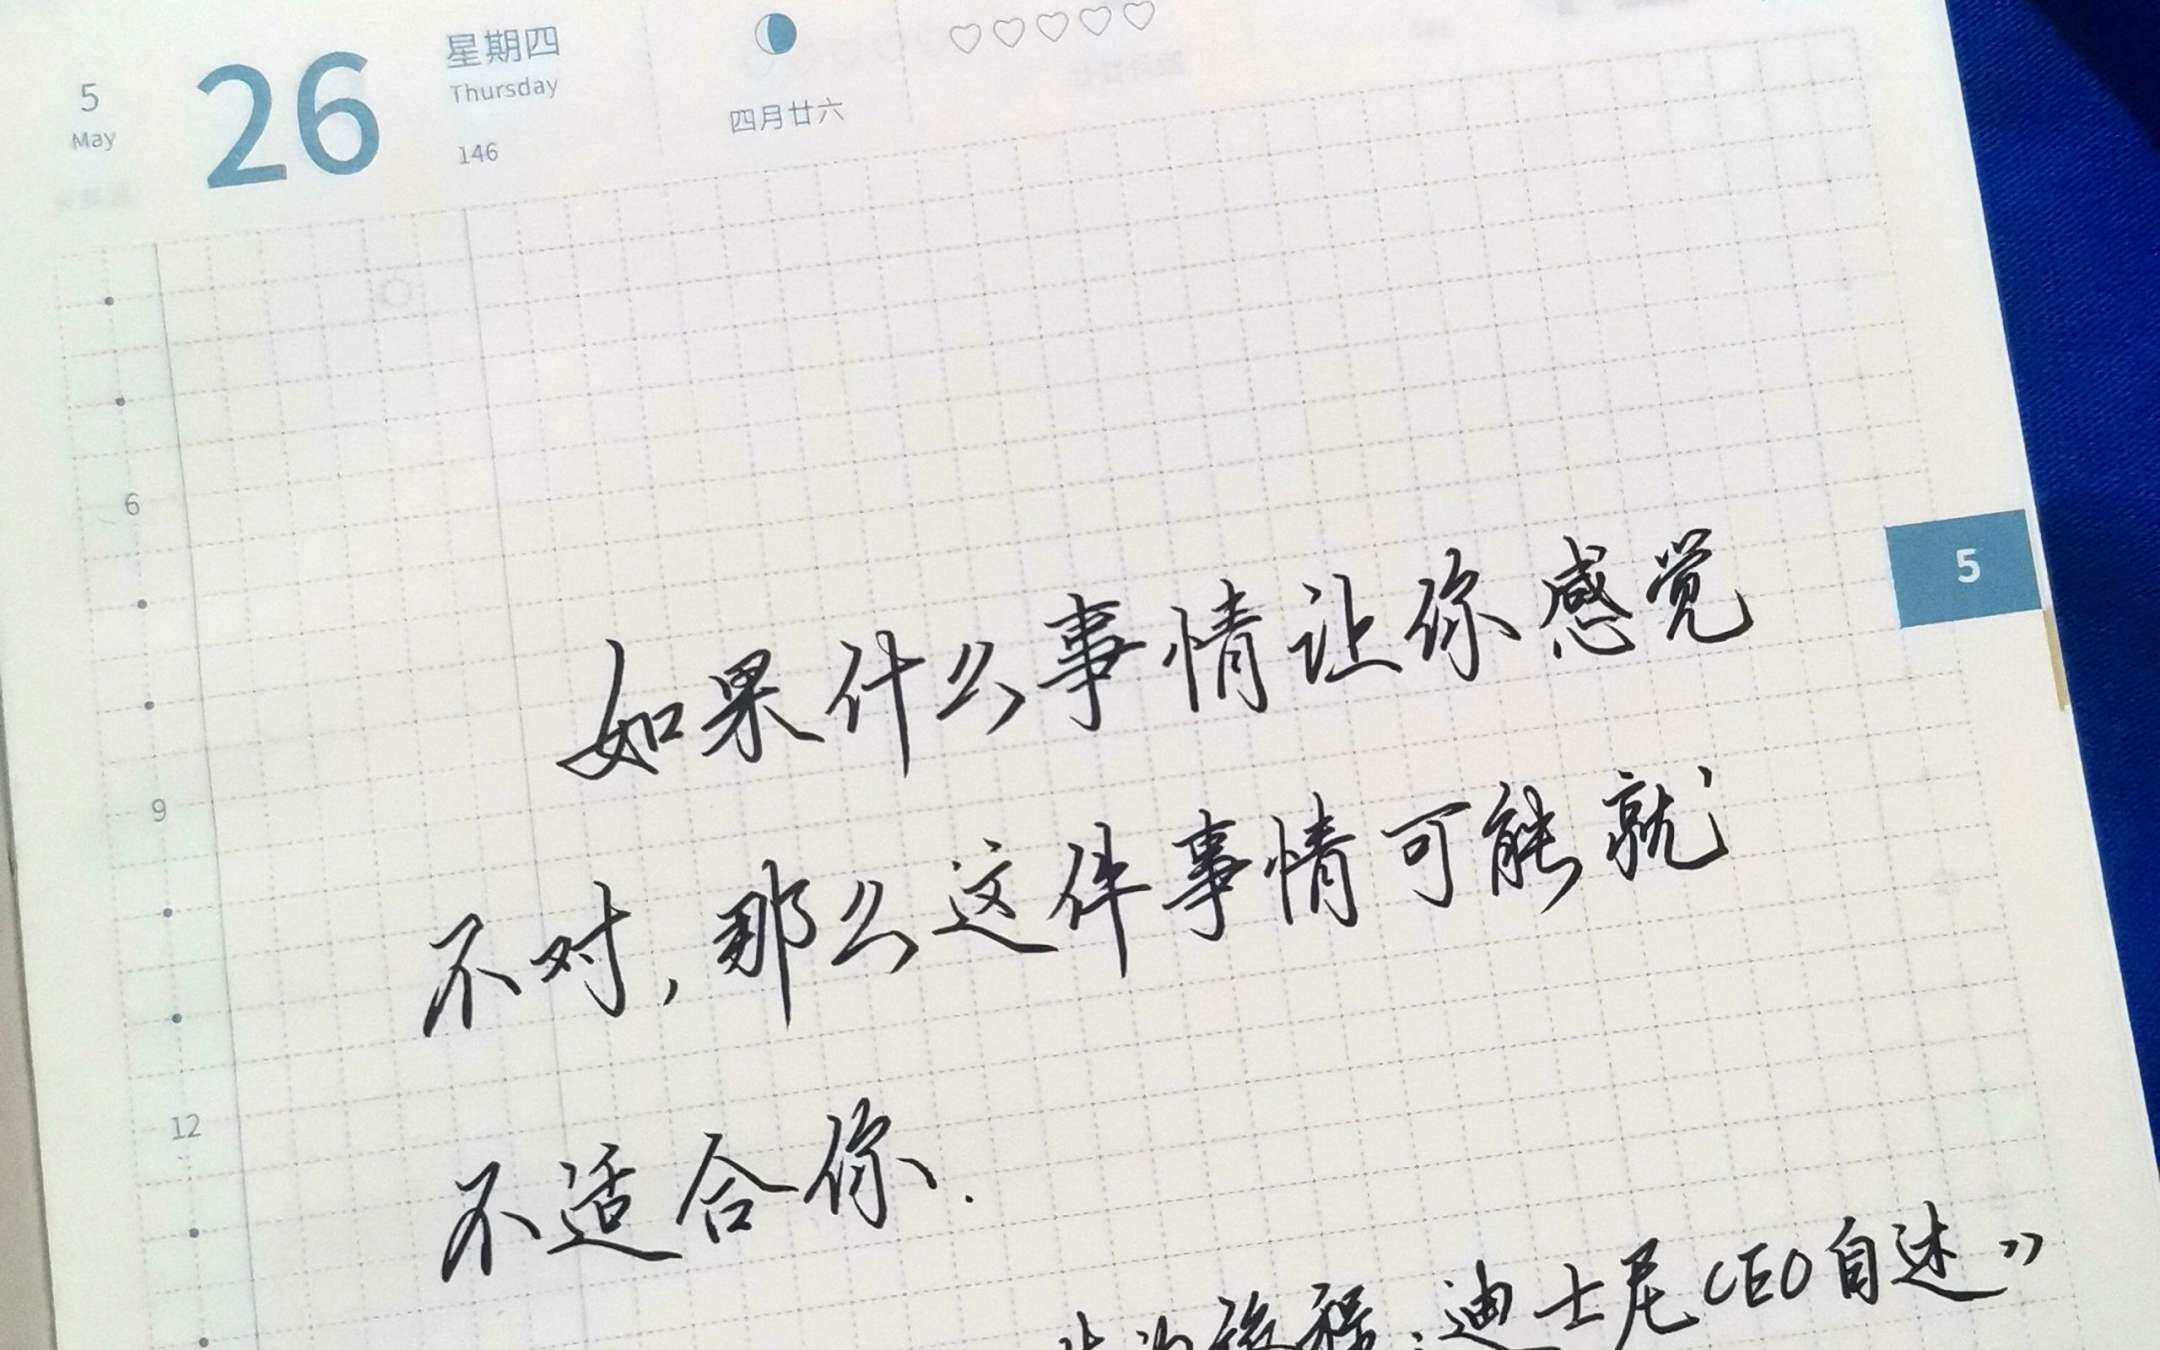 5
May
26
星期四
Thursday
146
四月廿六
6
5
9
12
如果什么事情让你感觉
不对，那么这件事情可能就
不适合你.
旅程:迪士尼CEO自述》